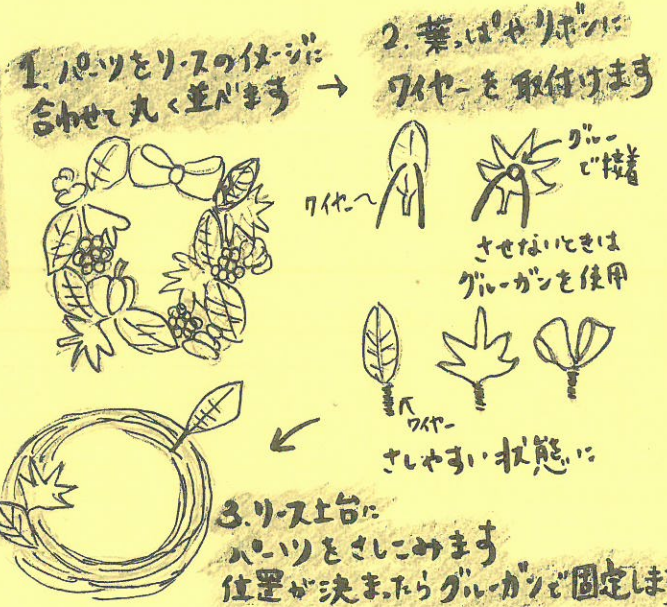 1. パーツをリースのイメージに
合わせて丸く並べます
→
2. 葉っぱやリボンに
ワイヤーを取付けます
ワイヤー
グルー
で接着
させないときは
グルーガンを使用
ワイヤー
さしやすい状態に
3. リース土台に
パーツをさしこみます
位置が決まったらグルーガンで固定しま